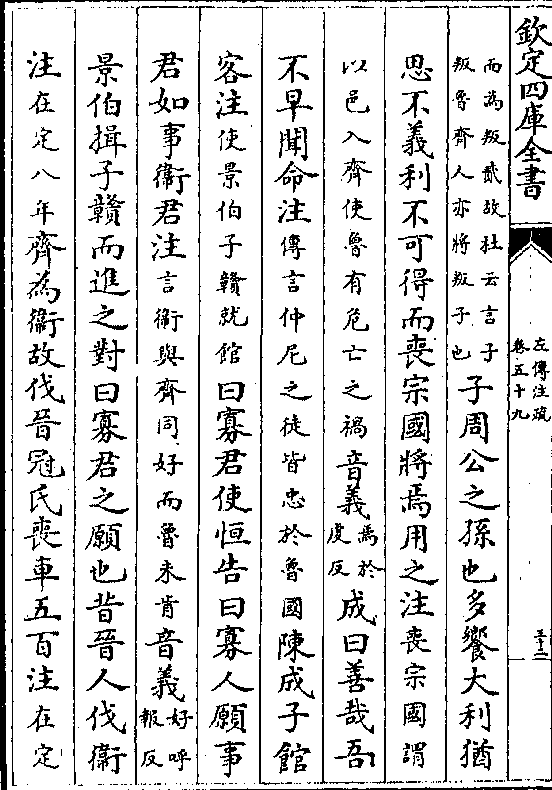 欽定四庫全書
左傳注疏
卷五十九
而為叛貳故杜云言子
叛魯齊人亦將叛子也
子周公之孫也多饗大利猶
思不義利不可得而喪宗國將焉用之注喪宗國謂
以邑入齊使魯有危亡之禍音義焉於
虔反
成曰善哉吾
不早聞命注傳言仲尼之徒皆忠於魯國陳成子館
客注使景伯子贛就館曰寡君使恒告曰寡人願事
君如事衛君注言衛與齊同好而魯未肯音義好呼
報反
景伯揖子贛而進之對曰寡君之願也昔晉人伐衛
注在定八年齊為衛故伐晉冠氏喪車五百注在定